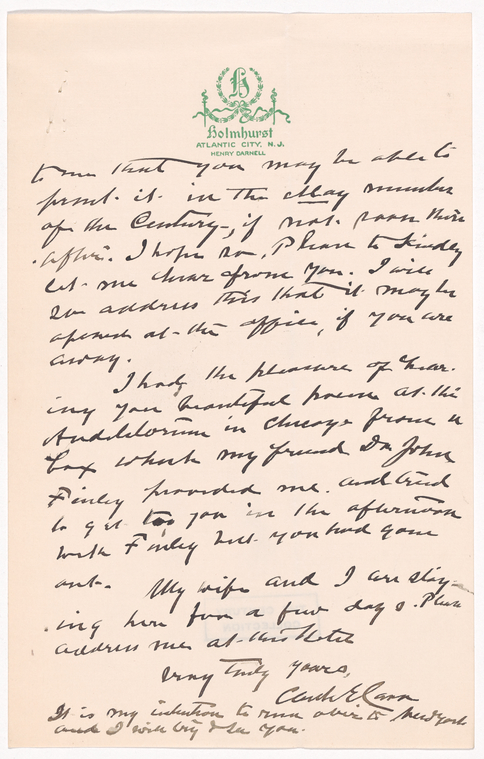 H
Holmhurst
ATLANTIC CITY, N. J.
HENRY DARNELL
to me that you may be able to
print it in the May number
of the Century, if not room then
after. I hope so. Please to kindly
let me hear from you. I will
so address this that it may be
opened at the office, if you are
away.
I had the pleasure of hear-
ing your beautiful poem at the
Auditorium in Chicago from a
box which my friend Dr John
Finley provided me. and tried
to get to you in the afternoon
with Finley but you had gone
out. My wife and I are stay-
ing here for a few days. Please
address me at this Hotel
Very truly yours,
Clark E Carr
It is my intention to run over to New York
and I will try to see you.